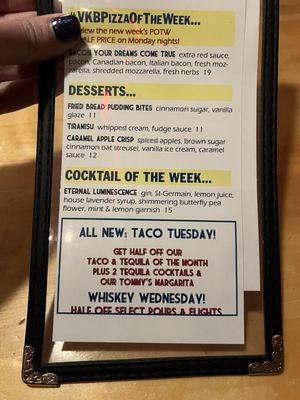 #VKBPIZZAOFTHEWEEK...
view the new week's POTW
HALF PRICE on Monday nights!
BACON YOUR DREAMS COME TRUE extra red sauce,
bacon, Canadian bacon, Italian bacon, fresh moz-
zarella, shredded mozzarella, fresh herbs 19
DESSERTS...
FRIED BREAD PUDDING BITES cinnamon sugar, vanilla
glaze 11
TIRAMISU whipped cream, fudge sauce 11
CARAMEL APPLE CRISP spiced apples, brown sugar
cinnamon oat streusel, vanilla ice cream, caramel
sauce 12
COCKTAIL OF THE WEEK...
ETERNAL LUMINESCENCE gin, St-Germain, lemon juice,
house lavender syrup, shimmering butterfly pea
flower, mint & lemon garnish 15
ALL NEW: TACO TUESDAY!
GET HALF OFF OUR
TACO & TEQUILA OF THE MONTH
PLUS 2 TEQUILA COCKTAILS &
OUR TOMMY'S MARGARITA
WHISKEY WEDNESDAY!
HALF OFF SELECT POURS & FLIGHTS